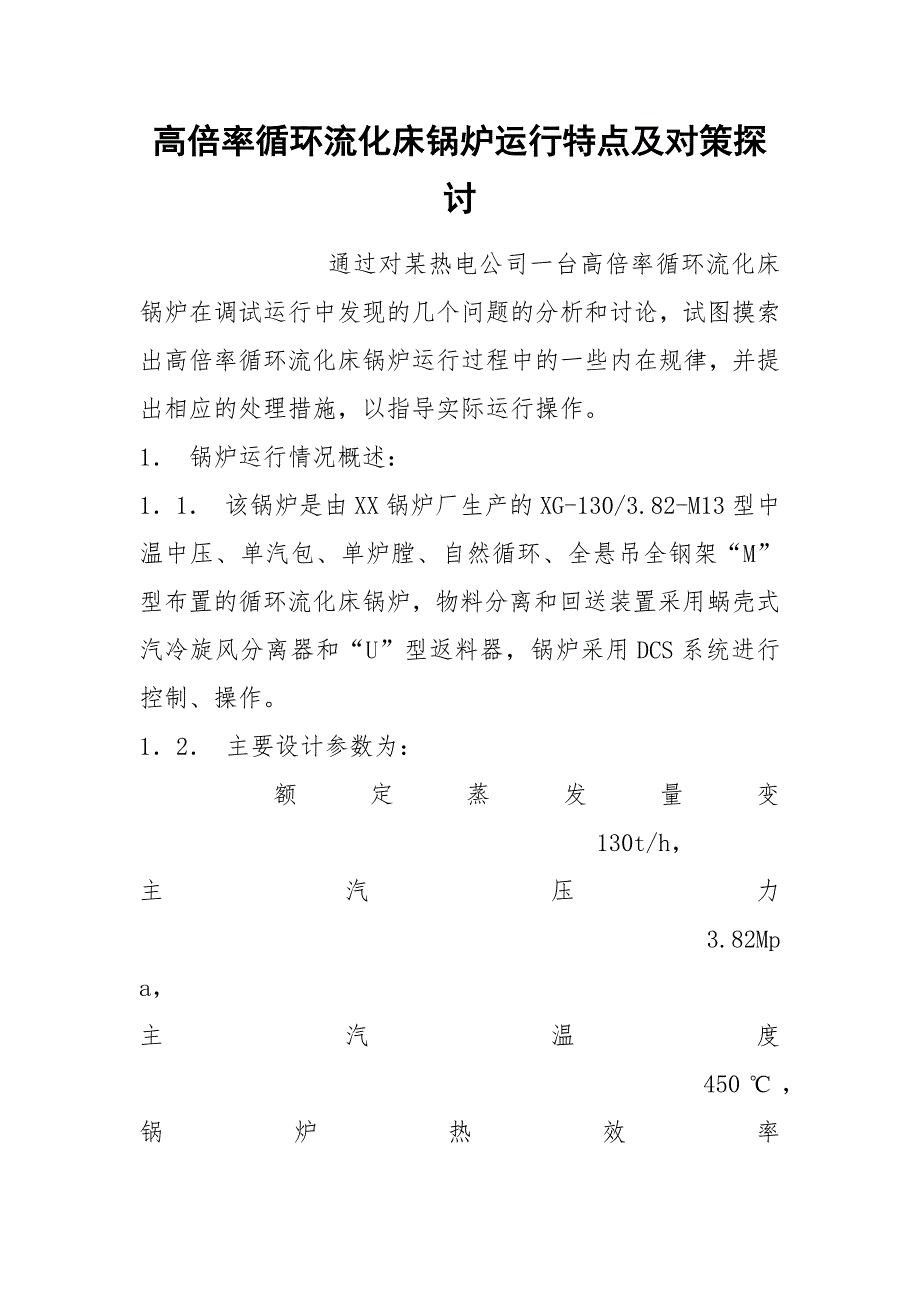 高倍率循环流化床锅炉运行特点及对策探
讨
通过对某热电公司一台高倍率循环流化床
锅炉在调试运行中发现的几个问题的分析和讨论，试图摸索
出高倍率循环流化床锅炉运行过程中的一些内在规律，并提
出相应的处理措施，以指导实际运行操作。
1． 锅炉运行情况概述：
1．1． 该锅炉是由 XX 锅炉厂生产的 XG-130/3.82-M13 型中
温中压、单汽包、单炉膛、自然循环、全悬吊全钢架“M”
型布置的循环流化床锅炉，物料分离和回送装置采用蜗壳式
汽冷旋风分离器和“U”型返料器，锅炉采用 DCS 系统进行
控制、操作。
1．2． 主要设计参数为：
额定蒸发量变
130t/h，
主汽压力
3.82Mp
a，
主汽温度
450℃，
锅炉热效率